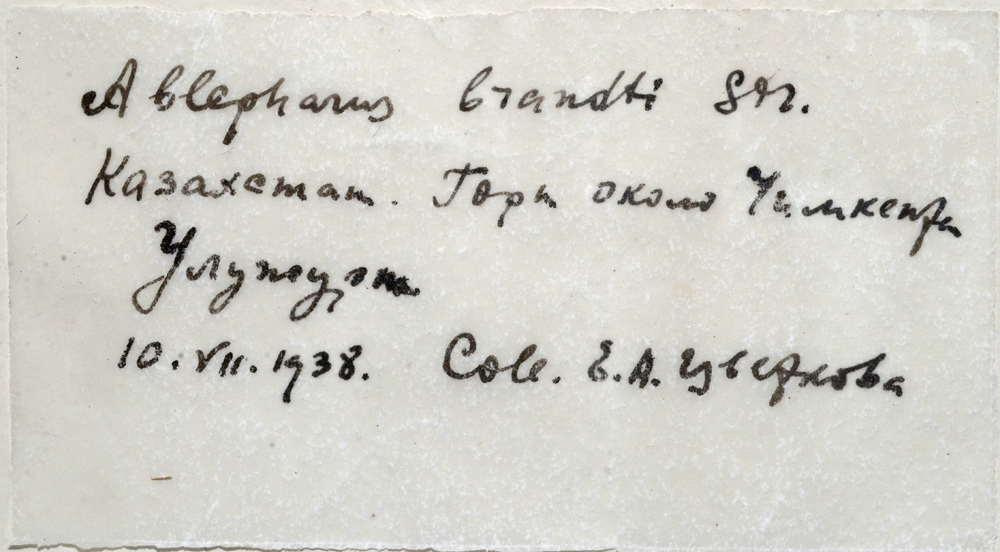 Ablepharus brandti Str.
Казахстан. Горы около Чимкента
10.VII.1938. Coll. Е.А. Цветкова